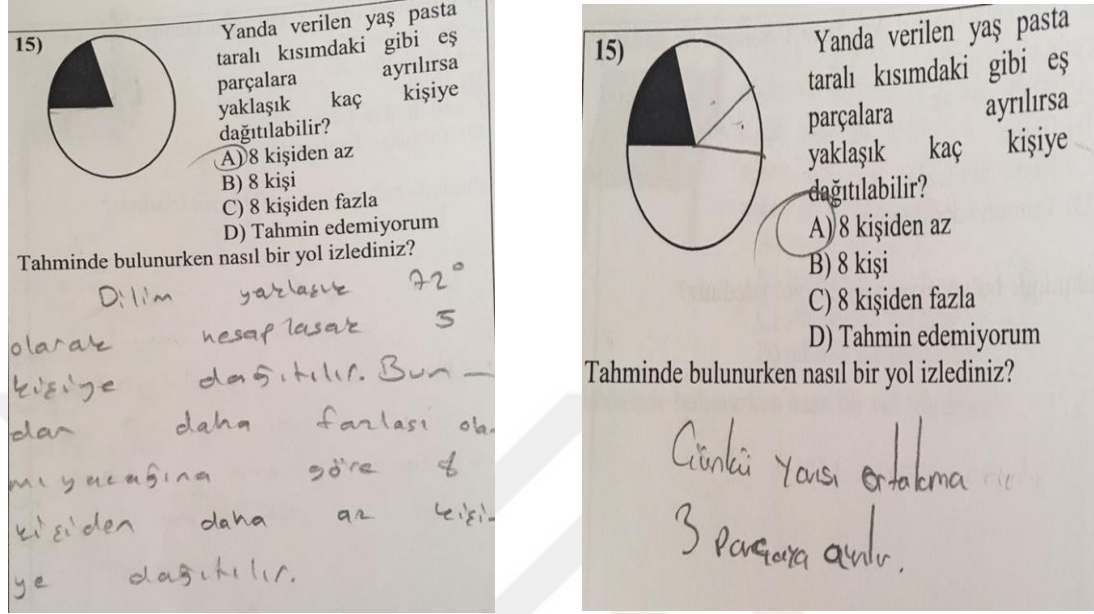 15)
Yanda verilen yaş pasta
taralı kısımdaki gibi eş
parçalara ayrılırsa
yaklaşık kaç kişiye
dağıtılabilir?
A) 8 kişiden az
B) 8 kişi
C) 8 kişiden fazla
D) Tahmin edemiyorum
Tahminde bulunurken nasıl bir yol izlediniz?
Dilim yaklaşık 72°
olarak hesaplasak 5
kişiye dağıtılır. Bun-
dan daha fazlası ola-
mıyacağına göre 8
kişiden daha az kişi-
ye dağıtılır.
15)
Yanda verilen yaş pasta
taralı kısımdaki gibi eş
parçalara ayrılırsa
yaklaşık kaç kişiye
dağıtılabilir?
A) 8 kişiden az
B) 8 kişi
C) 8 kişiden fazla
D) Tahmin edemiyorum
Tahminde bulunurken nasıl bir yol izlediniz?
Çünkü yarısı ortalama
3 parçaya ayrılır.